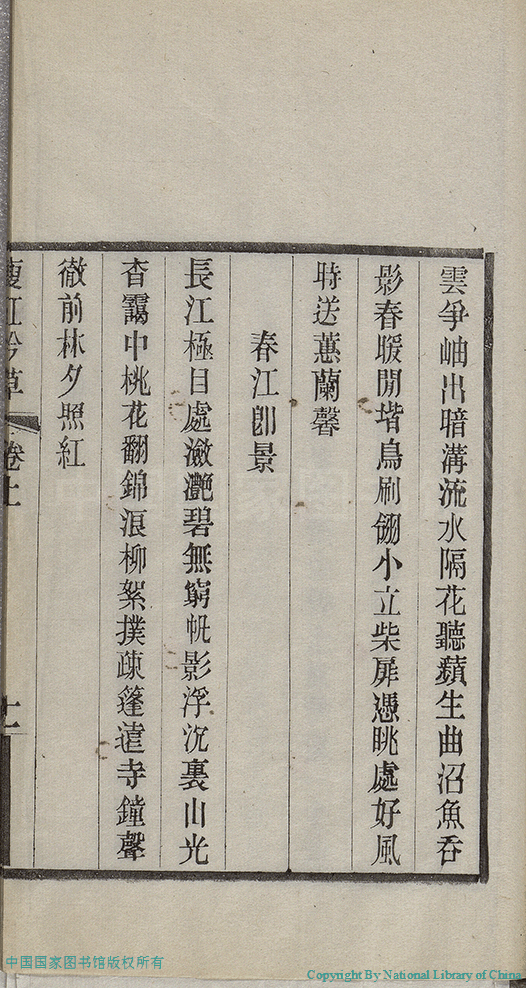 雲爭岫出暗溝流水隔花聽蘋生曲沼魚吞
影春暖閒堦鳥刷翎小立柴扉憑眺處好風
時送蕙蘭馨
春江卽景
長江極目處瀲灔碧無窮帆影浮沉裏山光
杳靄中桃花翻錦浪柳絮撲疎篷遠寺鐘聲
徹前林夕照紅
瘦紅吟草
卷上
十一
中国国家图书馆版权所有
Copyright By National Library of China